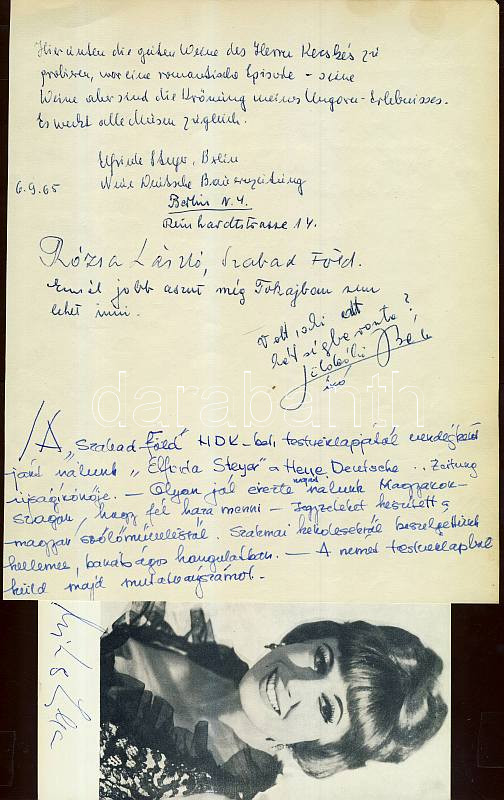 Hier unten die guten Weine des Herrn Kecskés zu
probieren, war eine romantische Episode – seine
Weine aber sind die Krönung meines Ungarn-Erlebnisses.
Es weckt alle Musen zugleich.
Elfriede Steyer, Berlin
6.9.65
Neue Deutsche Bauernzeitung
Berlin N.4.
Reinhardtstrasse 14.
Rózsa László, Szabad Föld.
Ennél jobb aszút még Tokajban sem
lehet inni.
Volt aki ezt
kétségbe vonta?
Béla
író
darabanth
/A „Szabad Föld” NDK-beli testvérlapjától vendégként
járt nálunk „Elfrida Steyer” a Neue Deutsche .. Zeitung
újságírónője. – Olyan jól érezte magát nálunk Magyaror-
szágon, hogy fél haza menni – Jegyzeteket készített a
magyar szőlőművelésről. Szakmai kérdésekről beszélgettünk
kellemes, barátságos hangulatban. – A német testvérlapból
küld majd mutatványszámot.